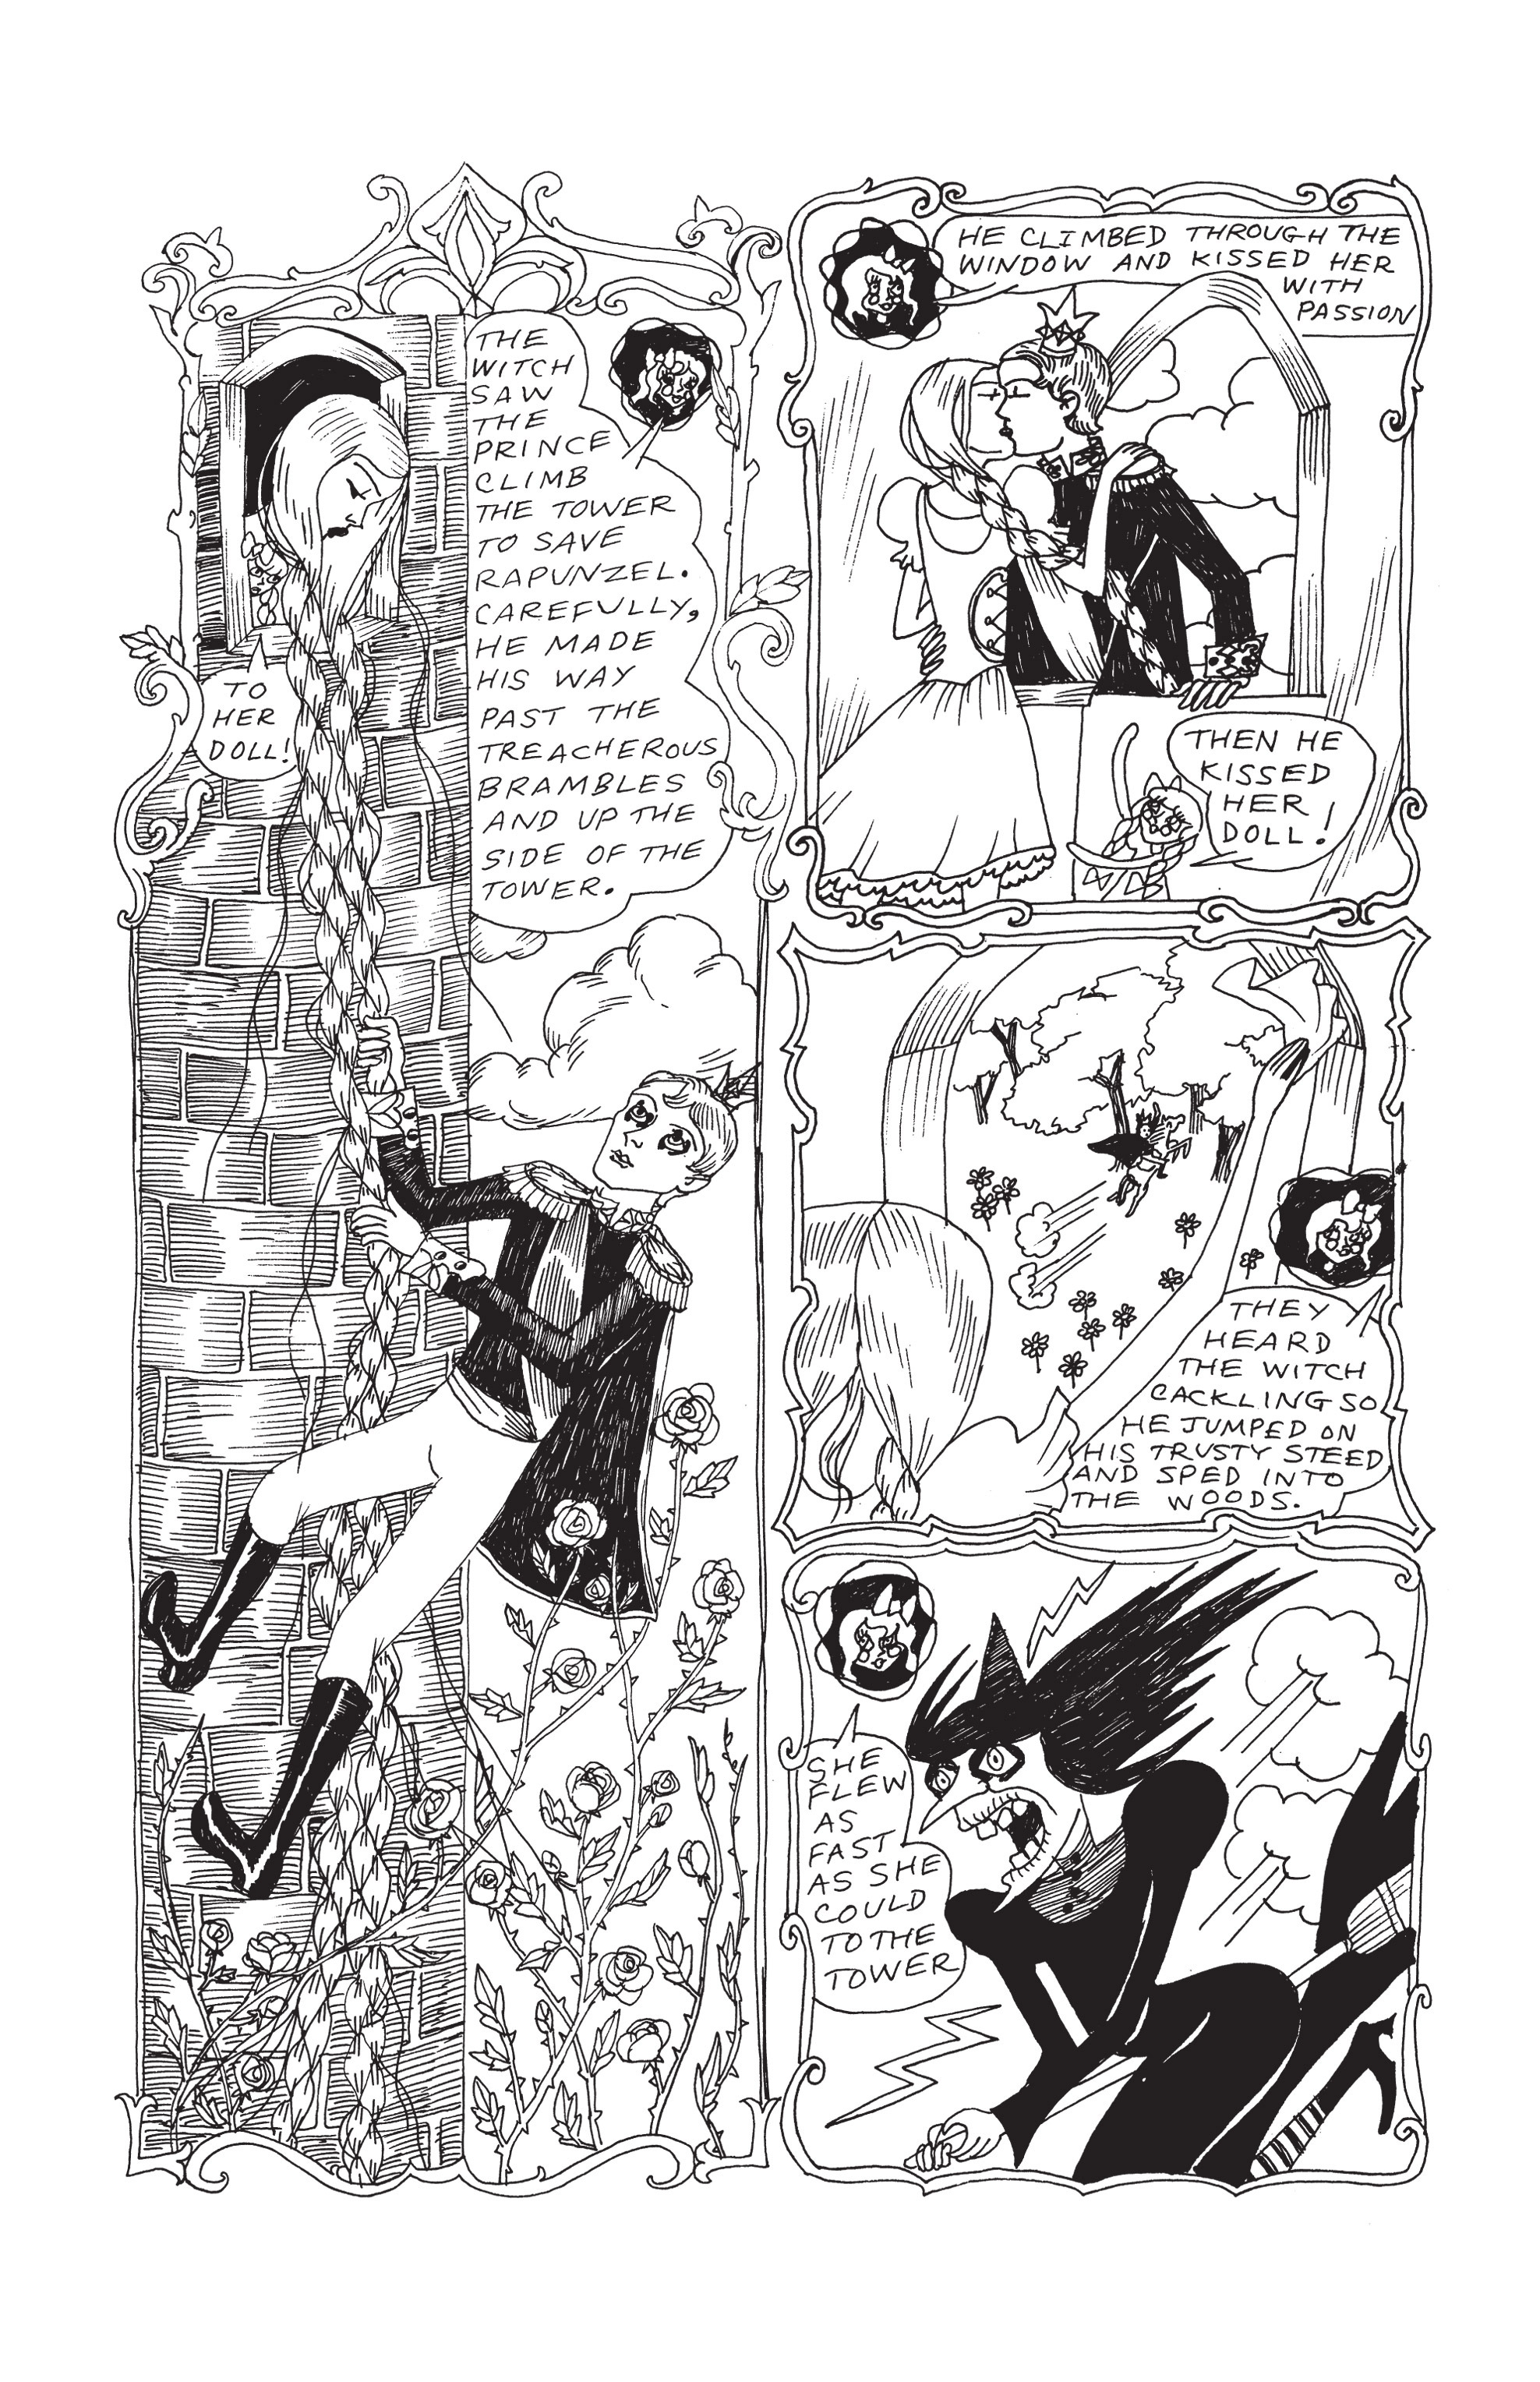 THE
WITCH
SAW
THE
PRINCE
CLIMB
THE TOWER
TO SAVE
RAPUNZEL.
CAREFULLY,
HE MADE
HIS WAY
PAST THE
TREACHEROUS
BRAMBLES
AND UP THE
SIDE OF THE
TOWER.
TO
HER
DOLL!
HE CLIMBED THROUGH THE
WINDOW AND KISSED HER
WITH
PASSION
THEN HE
KISSED
HER
DOLL!
THEY
HEARD
THE WITCH
CACKLING SO
HE JUMPED ON
HIS TRUSTY STEED
AND SPED INTO
THE WOODS.
SHE
FLEW
AS
FAST
AS SHE
COULD
TO THE
TOWER